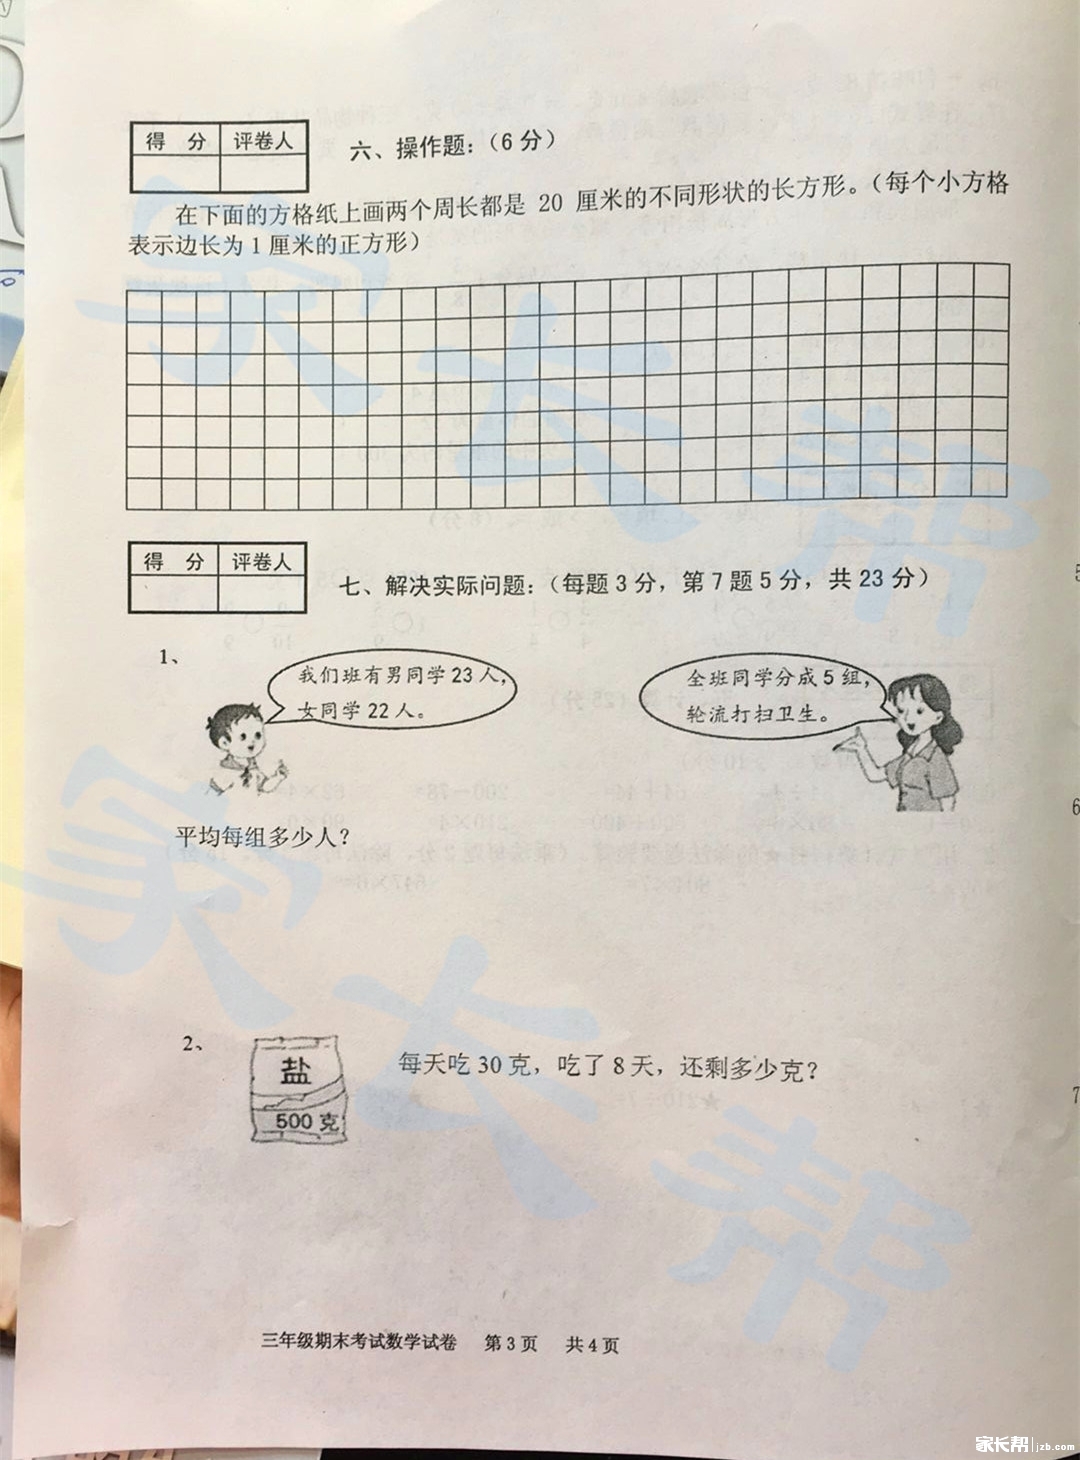 得 分 评卷人
六、操作题：（6分）
在下面的方格纸上画两个周长都是 20 厘米的不同形状的长方形。（每个小方格
表示边长为1厘米的正方形）
得 分 评卷人
七、解决实际问题：（每题3分，第7题5分，共23分）
1、
我们班有男同学23人，
女同学22人。
全班同学分成5组，
轮流打扫卫生。
平均每组多少人？
2、
盐
500克
每天吃30克，吃了8天，还剩多少克？
三年级期末考试数学试卷 第3页 共4页
家长帮
家长帮
家长帮 jzb.com